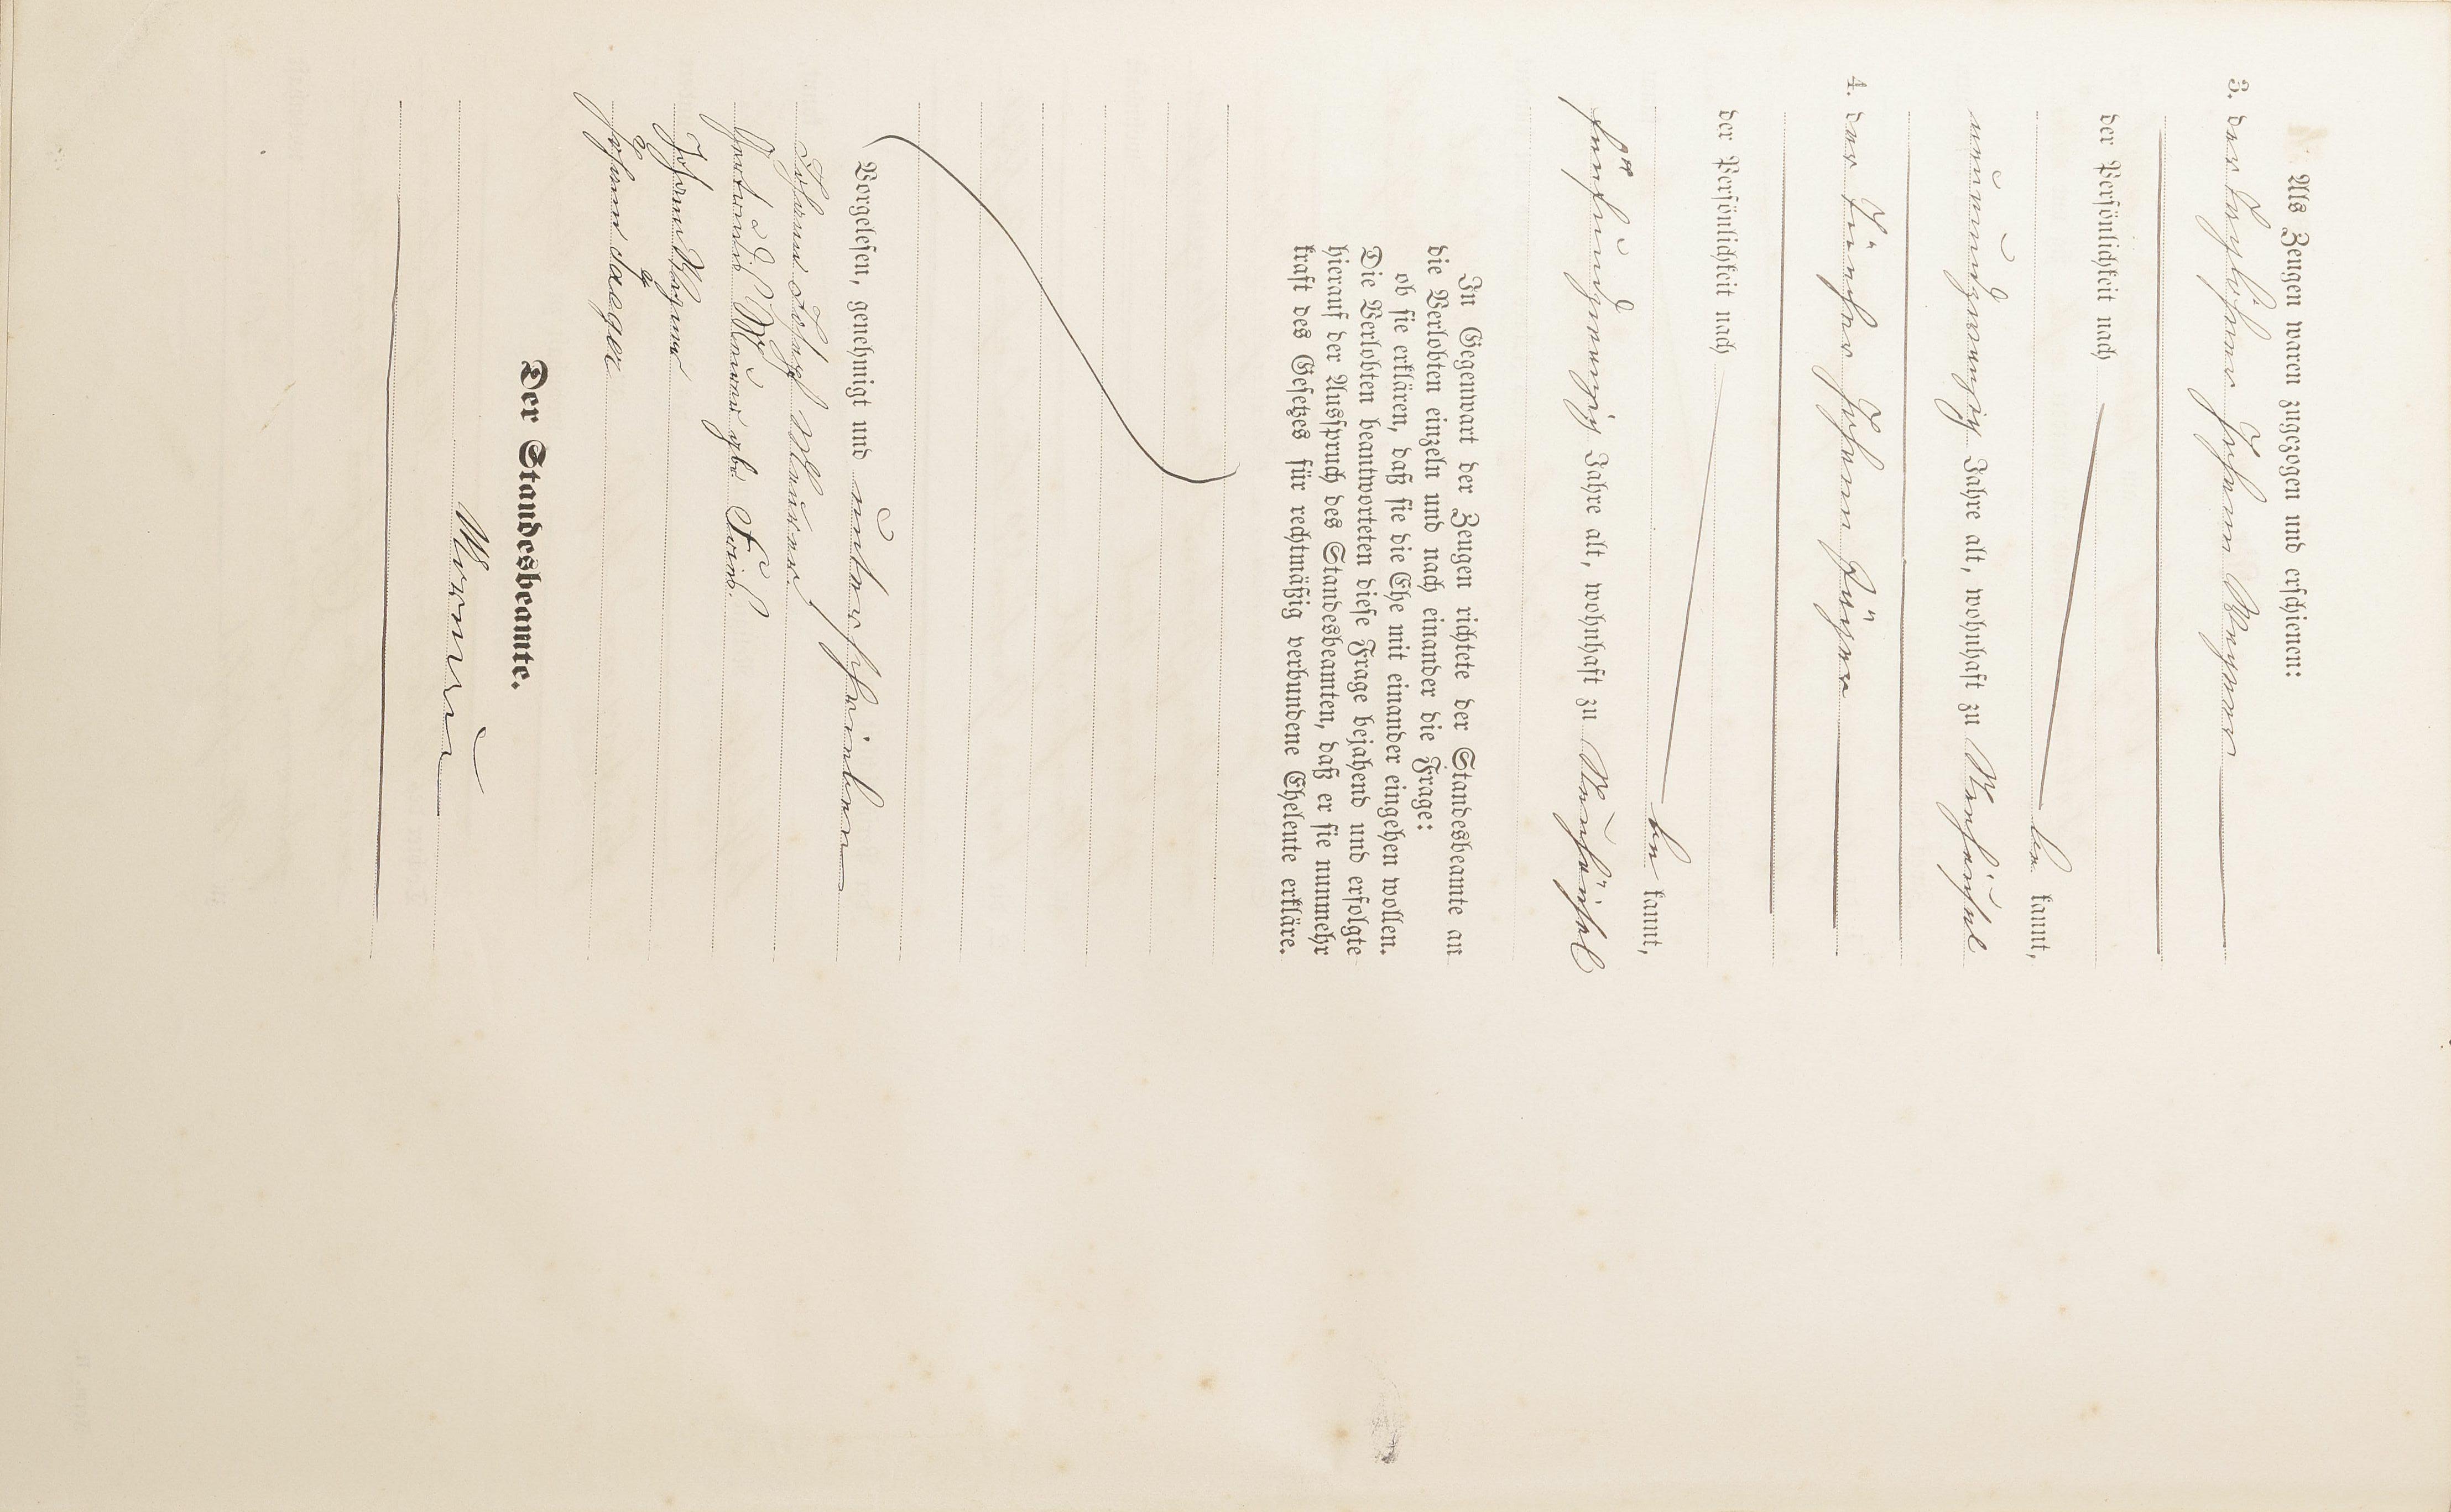 Als Zeugen waren zugezogen und erschienen:
3. der Taglöhner Johann Wegner
der Persönlichkeit nach
be kannt,
neunundzwanzig Jahre alt, wohnhaft zu
4. der Tüncher Johann
der Persönlichkeit nach
be kannt,
fünfundzwanzig Jahre alt, wohnhaft zu
In Gegenwart der Zeugen richtete der Standesbeamte an
die Verlobten einzeln und nach einander die Frage:
ob sie erklären, daß sie die Ehe mit einander eingehen wollen.
Die Verlobten beantworteten diese Frage bejahend und erfolgte
hierauf der Ausspruch des Standesbeamten, daß er sie nunmehr
kraft des Gesetzes für rechtmäßig verbundene Eheleute erkläre.
Vorgelesen, genehmigt und unterschrieben
Johann Joseph Meurer
Gertrud Meurer gb.
Johann Wegner
Johann Jaeger
Der Standesbeamte.